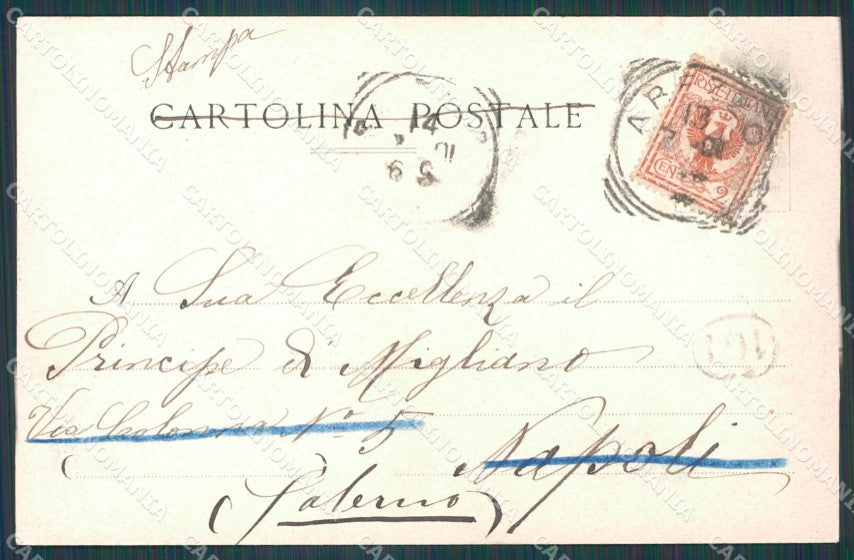 Stampa
CARTOLINA POSTALE
POSTE ITALIANE
CENT 2
A Sua Eccellenza il
Principe di Migliano
Via Colonna No 5
Napoli
(Salerno)